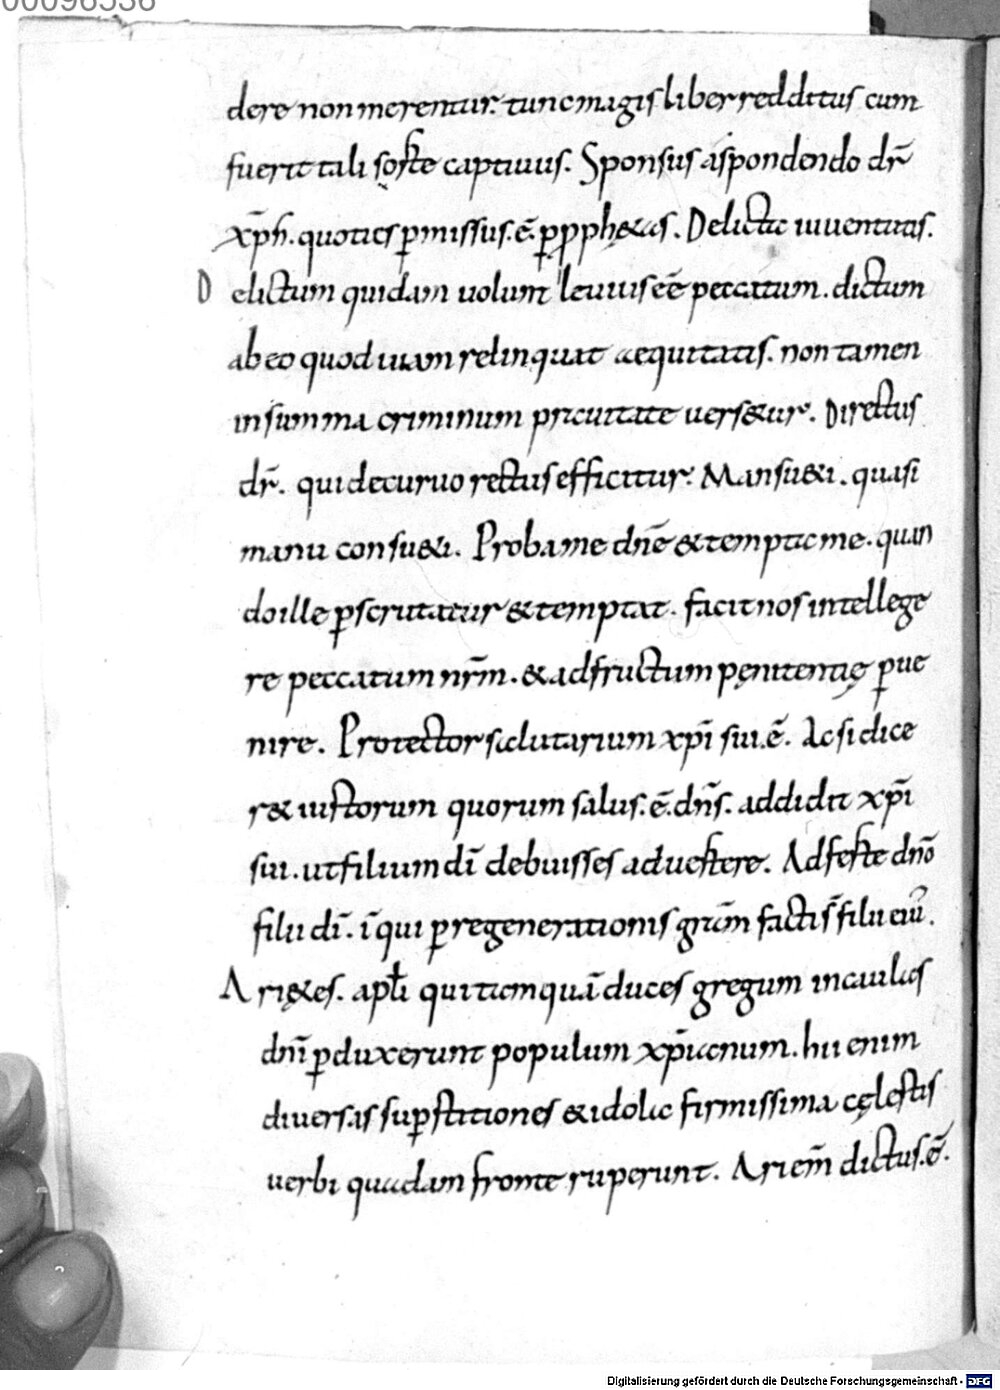 00096536
dere non merentur. tunc magis liber redditus cum
fuerit tali hoste captiuus. Sponsus a spondendo dr̄
xp̄h. quoties p̱missus. ē. p̱ p̱ph&as. Delicta iuuentutis.
Delictum quidam uolunt leuius eē peccatum. dictum
ab eo quod uiam relinquat aequitatis. non tamen
in summa criminum prauitate uers&ur. Directus
dr̄. qui de curuo rectus efficitur. Mansu&i. quasi
manu consu&i. Proba me dn̄e & tempta me. quan
do ille p̱scrutatur & temptat. facit nos intellege
re peccatum nr̄m. & ad fructum pęnitentię p̱ue
nire. Protector salutarium xp̄i sui. ē. Ac si dice
r& iustorum quorum salus. ē. dn̄s. addidit xp̄i
sui. ut filium dī debuisses aduertere. Adferte dn̄o
filii dī. ī qui p̱ regenerationis grām facti s̄ filii eius.
Ari&es. apl̄i qui tamquā duces gregum in caulas
dn̄i p̱duxerunt populum xp̄ianum. hii enim
diuersas sup̱stitiones & idola firmissima cęlestis
uerbi quadam fronte ruperunt. Ariem̄ dictus. ē.
Digitalisierung gefördert durch die Deutsche Forschungsgemeinschaft - DFG